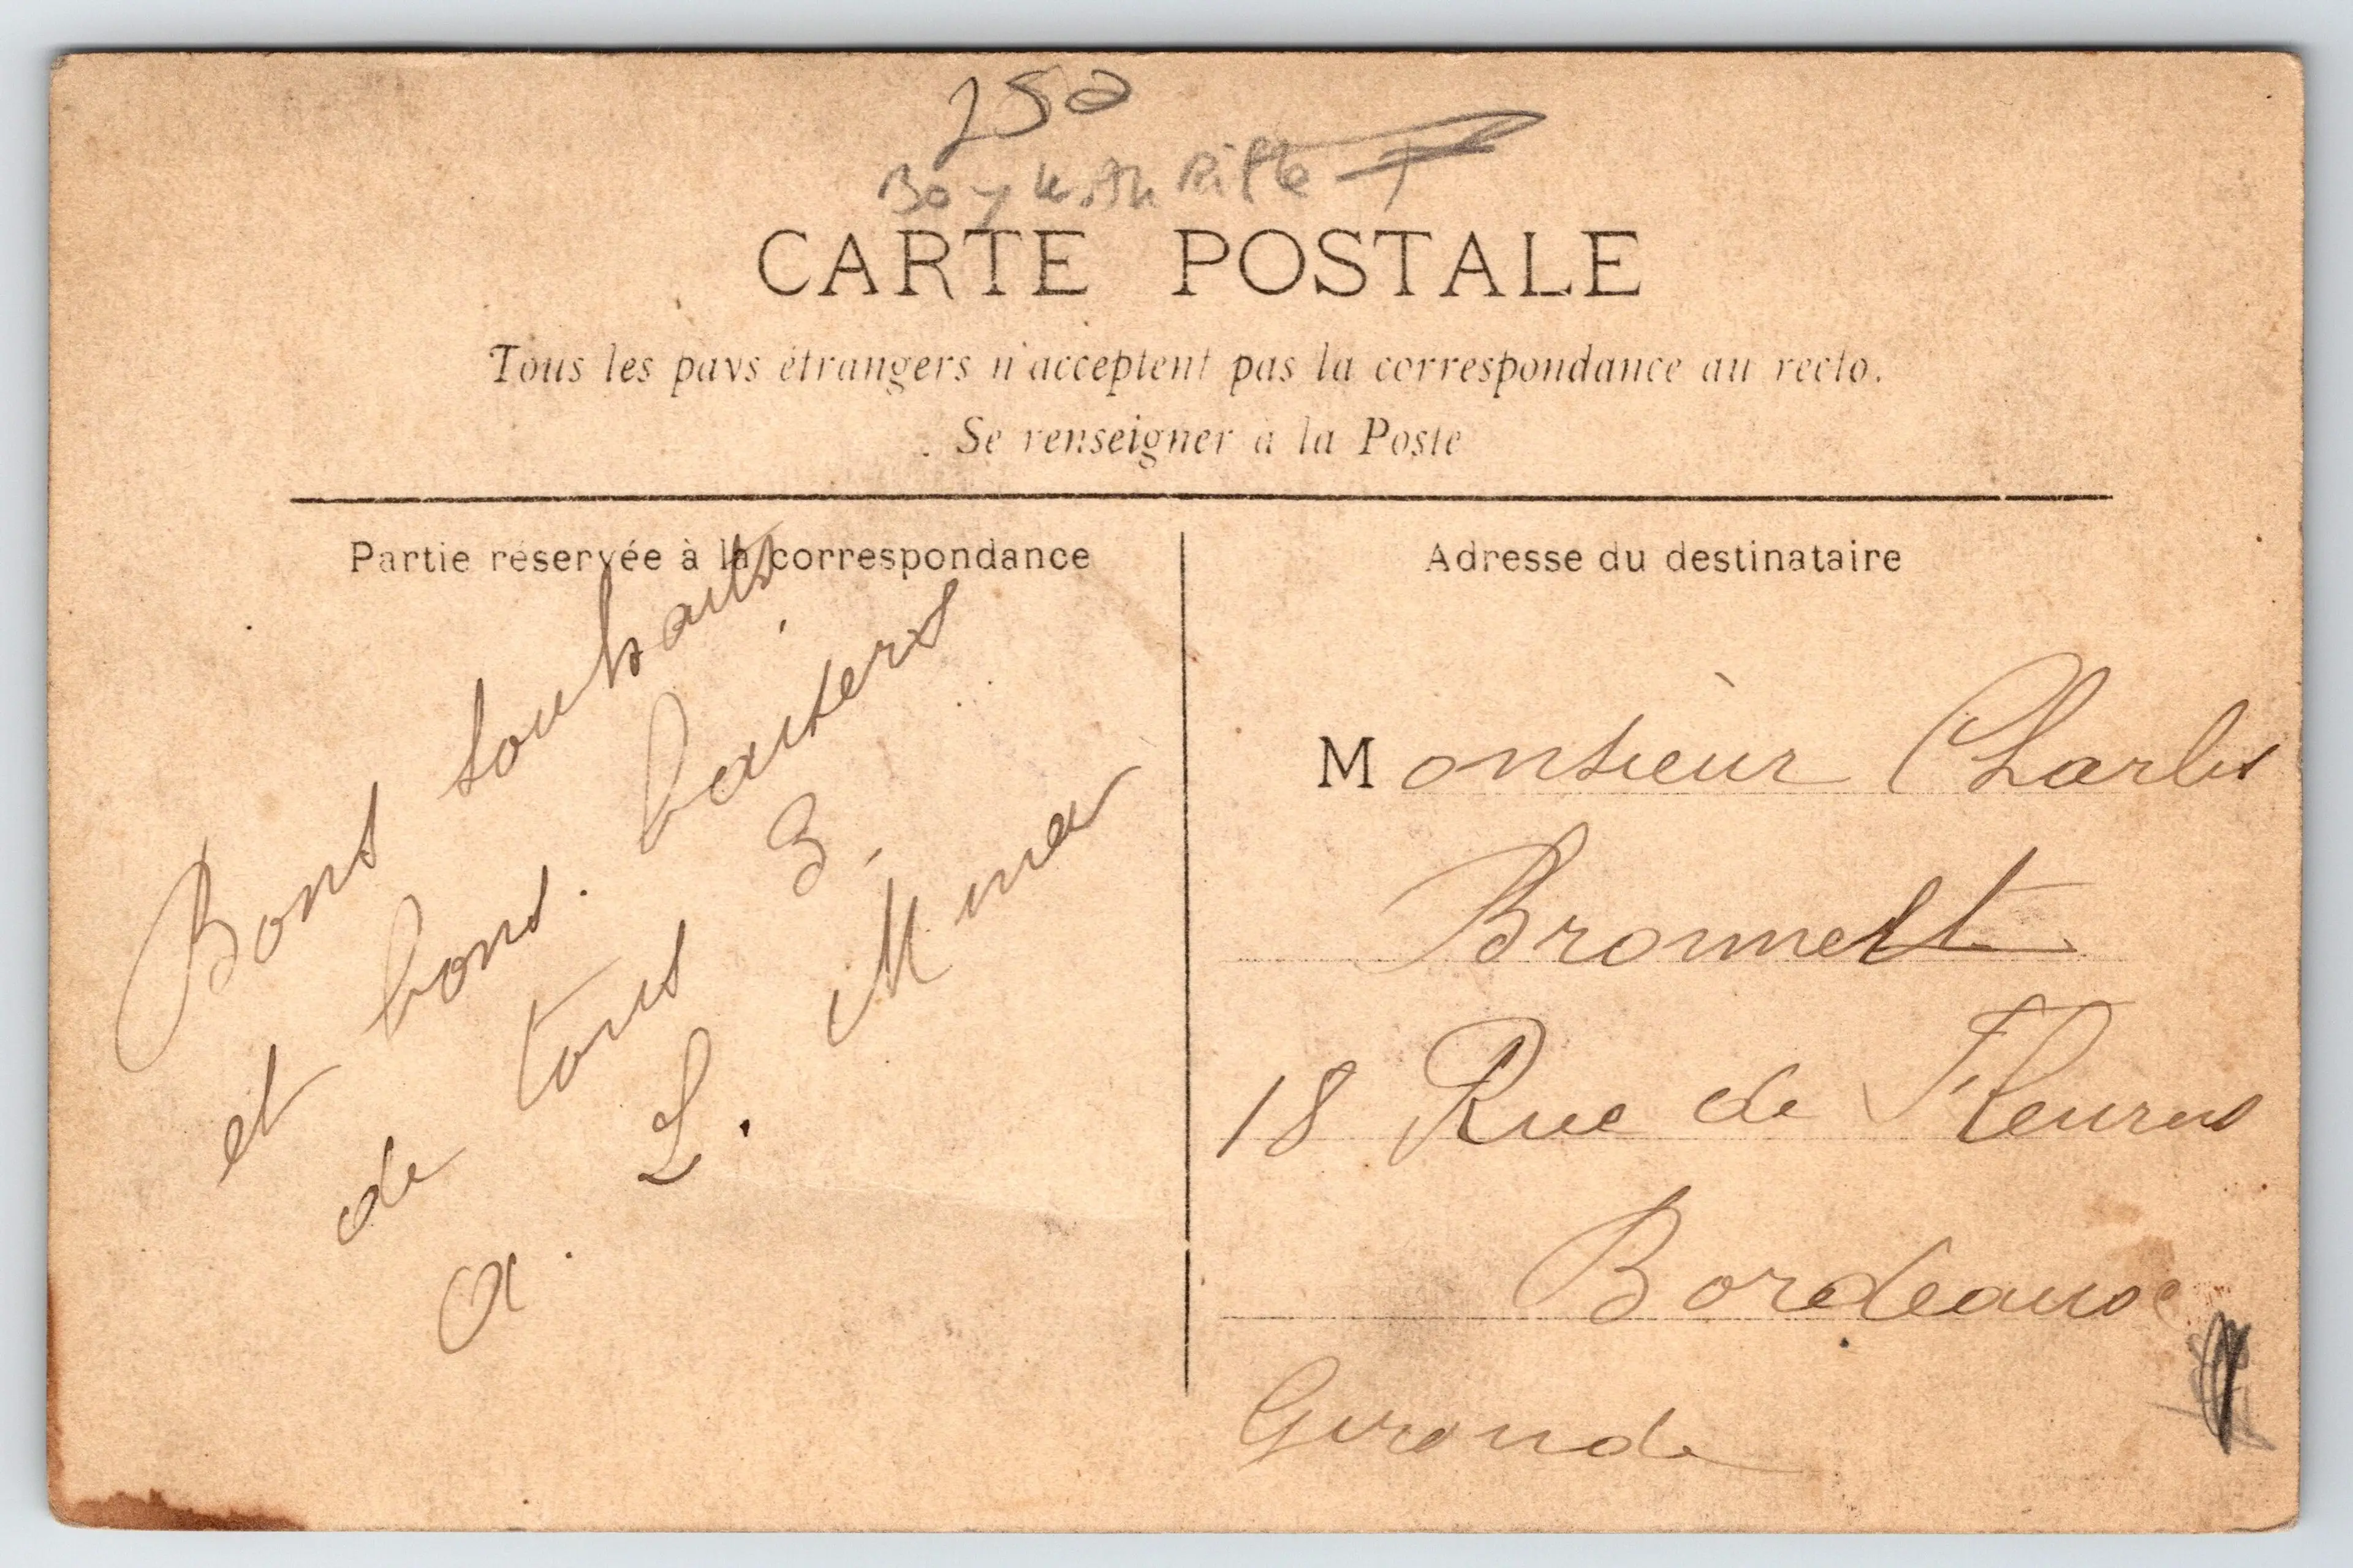 250
Boy with Rifle
CARTE POSTALE
Tous les pays étrangers n'acceptent pas la correspondance au recto.
Se renseigner à la Poste
Partie réservée à la correspondance
Bons souhaits
et bons baisers
de tous 3.
A. L. Mina
Adresse du destinataire
Monsieur Charles
Bronnert
18 Rue de Fleurus
Bordeaux
Gironde